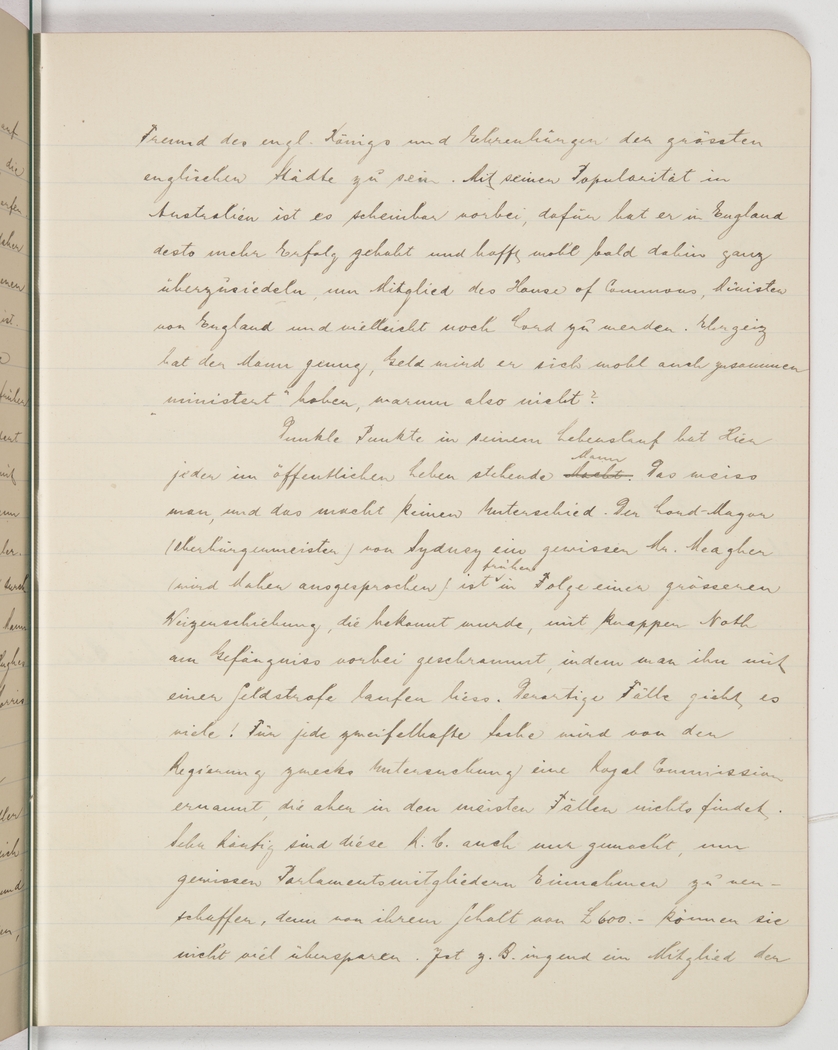 Freund des engl. Königs und Ehrenbürger der grössten
englischen Städte zu sein. Mit seiner Popularität in
Australien ist es scheinbar vorbei, dafür hat er in England
desto mehr Erfolg gehabt und hofft wohl bald dahin ganz
überzusiedeln, um Mitglied des House of Commons, Minister
von England und vielleicht noch Lord zu werden. Ehrgeiz
hat der Mann genug, Geld wird er sich wohl auch „zusammen
ministert" haben, warum also nicht?
Dunkle Punkte in seinem Lebenslauf hat hier
Mann
jeder im öffentlichen Leben stehende. Das weiss
man, und das macht keinen Unterschied. Der Lord-Mayor
(Oberbürgermeister) von Sydney ein gewisser Mr. Meagher
früher
(wird Maher ausgesprochen) ist in Folge einer grösseren
Weizenschiebung, die bekannt wurde, mit knapper Noth
am Gefängniss vorbei geschrammt, indem man ihn mit
einer Geldstrafe laufen liess. Derartige Fälle giebt es
viele! Für jede zweifelhafte Sache wird von der
Regierung zwecks Untersuchung eine Royal Commission
ernannt, die aber in den meisten Fällen nichts findet.
Sehr häufig sind diese R. C. auch nur gemacht, um
gewissen Parlamentsmitgliedern Einnahmen zu ver-
schaffen, denn von ihrem Gehalt von £600.- können sie
nicht viel übersparen. Ist z. B. irgend ein Mitglied der